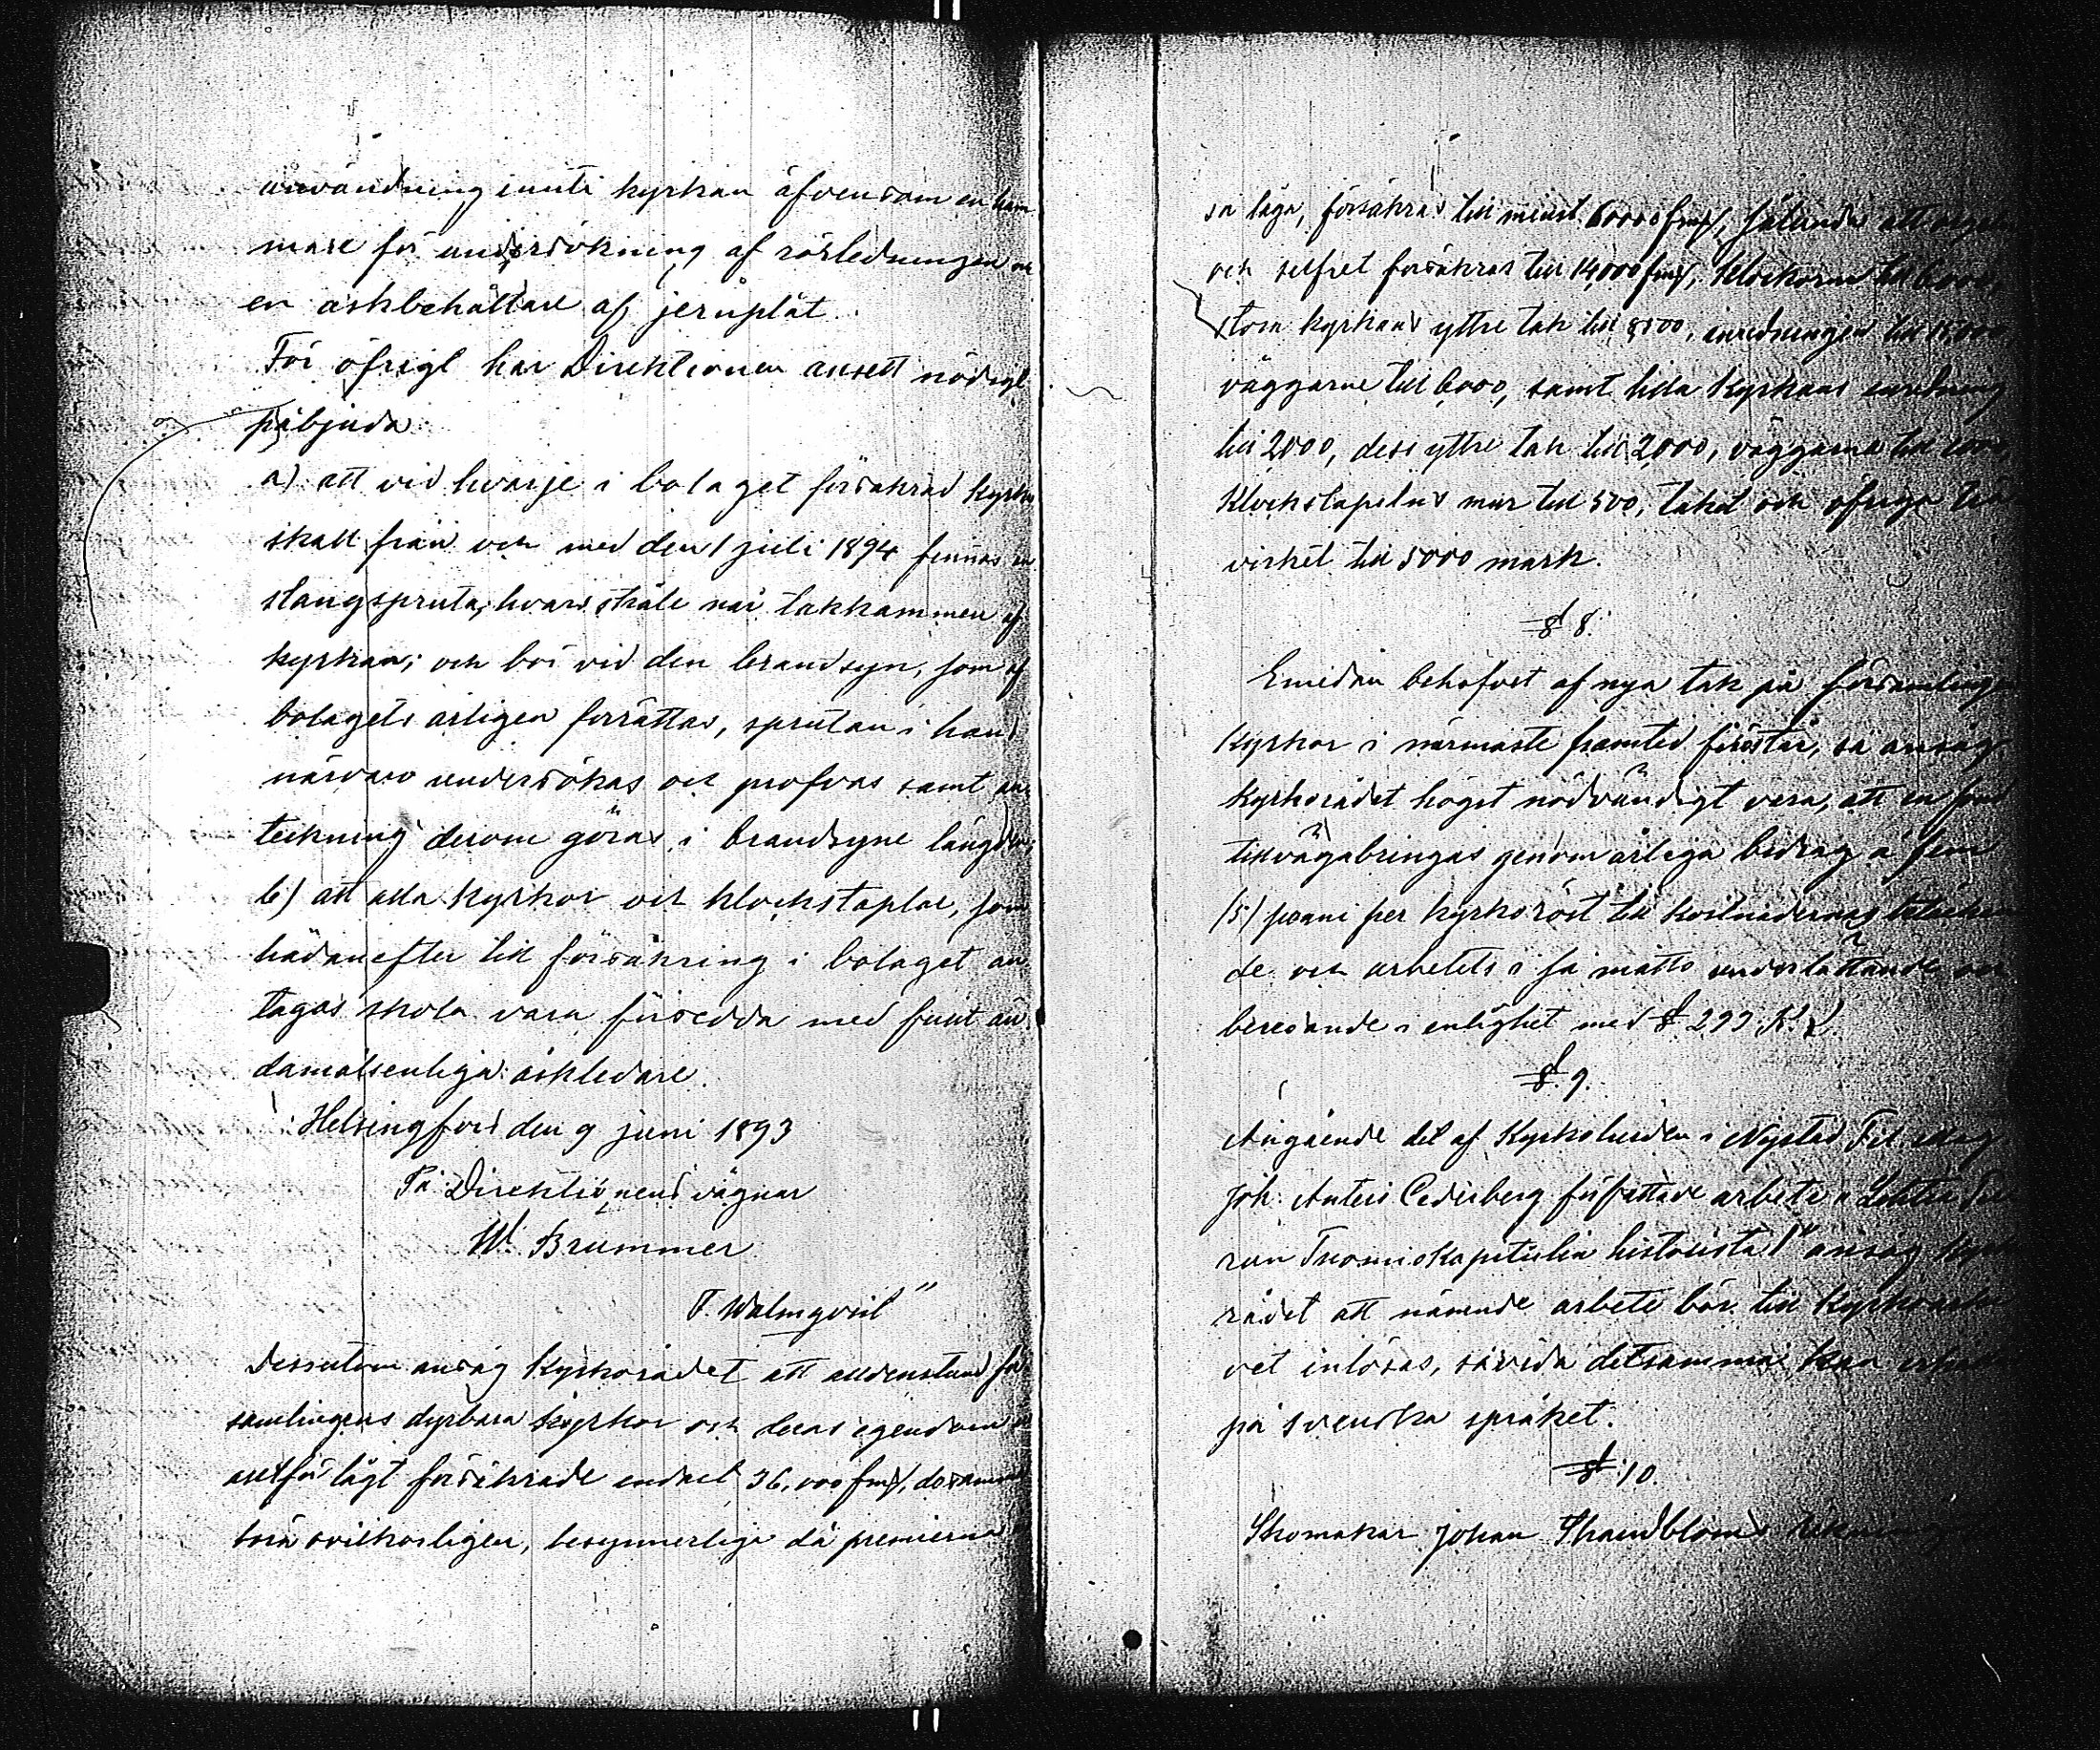 användning inuti kyrkan äfvensom en ham
mare för undersökning af rörledningen och
en askbehållare af jernplåt.
För öfrigt har Direktionen ansett nödigt
påbjuda
a) att vid hvarje i bolaget försäkrad kyrka
skall från och med den 1 juli 1894 finnas en
slangspruta, hvars stråle når takkammen af
kyrkan; och bör vid den brandsyn, som af
bolaget årligen förrättas, sprutan i hans
närvaro undersökas och profvas samt an
teckning derom göras i brandsyne längden;
b) att alla kyrkor och klockstaplar, som
hädanefter till försäkring i bolaget an
tagas skola vara försedda med fullt än
damålsenliga åskledare.
Helsingfors den 9 juni 1893
På Direktionens vägnar
W. Brummer
F. Walmqvist"
Dessutom ansåg Kyrkorådet att alldenstund för
samlingens dyrbara kyrkor och deras egendom är
alltför lågt försäkrade endast 36,000 fmk, desamma
böra ovilkorligen, besynnerligen då premierna
så låga, försäkras till minst 60000 fmk, sålunda att orgeln
och silfret försäkras till 14,000 fmk, klockorna till 6000,
stora kyrkans yttre tak till 8500, inredningen till 15,000,
väggarne till 6000, samt lilla kyrkans inredning
till 2000, dess yttre tak till 2,000, väggarna till 1000,
Klockstapelns mur till 500, taket och öfriga trä
virket till 5000 mark.
§ 8.
Emedan behofvet af nya tak på församlingens
kyrkor i närmaste framtid förestår, så ansåg
Kyrkorådet högst nödvändigt vara, att en fond
tillvägabringas genom årliga bidrag à fem
(5) penni per kyrkoröst till kostnadernas betäckan
de och arbetets i så måtto underlättande och
beredande i enlighet med § 299 K. L.
§ 9.
Angående det af Kyrkoherden i Nystad Fil Mag
Joh. Antero Cederberg författade arbete "Lehtiä
ran Tuomiokapitulin historiasta I" ansåg Kyrko
rådet att nämnde arbete bör till Kyrkoarki
vet inlösas, såvida detsamma kan erhållas
på svenska språket.
§ 10.
Skomakar Johan Strandbloms